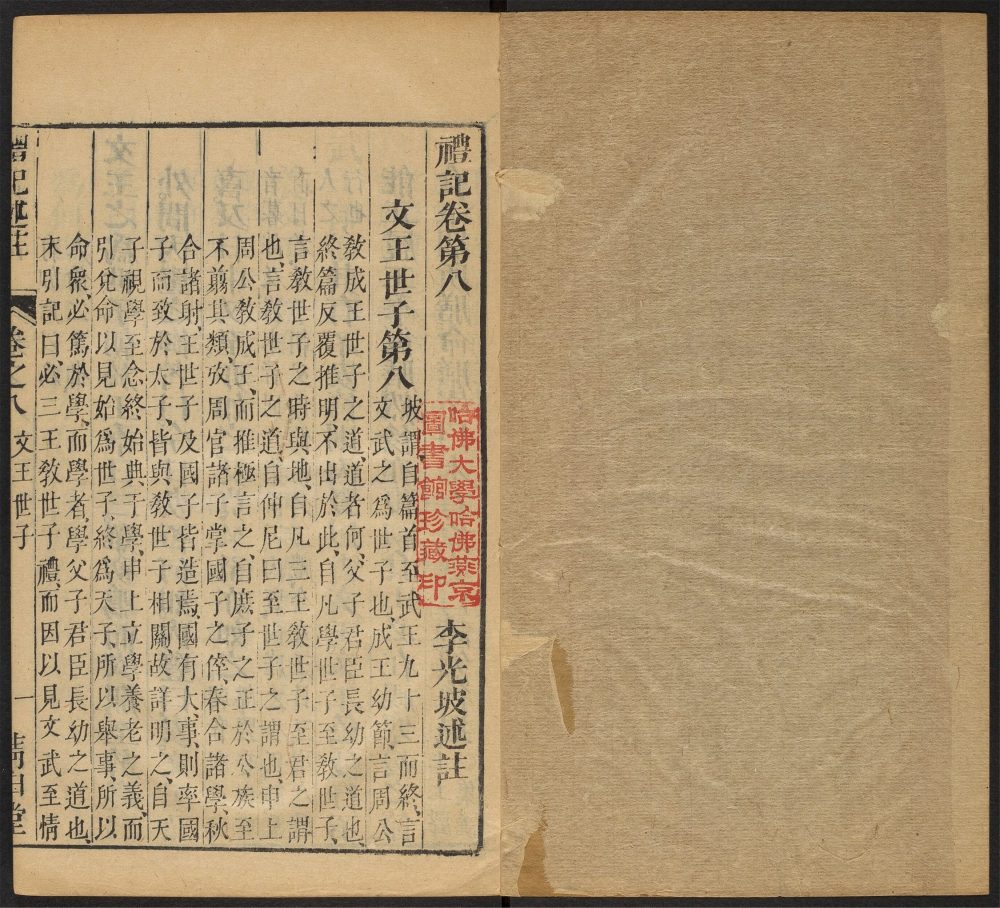 禮記卷第八
李光坡述註
哈佛大學哈佛燕京
圖書館珍藏印
文王世子第八
坡謂自篇首至武王九十三而終言
文武之爲世子也成王幼節言周公
教成王世子之道道者何父子君臣長幼之道也
終篇反覆推明不出於此自凡學世子至教世子
言教世子之時與地自凡三王教世子至君之謂
也言教世子之道自仲尼曰至世子之謂也申上
周公教成王而推極言之自庶子之正於公族至
不翦其類攷周官諸子掌國子之倅春合諸學秋
合諸射王世子及國子皆造焉國有大事則率國
子而致於太子皆與教世子相關故詳明之自天
子視學至念終始典于學申上立學養老之義而
引兌命以見始爲世子終爲天子所以舉事所以
命衆必篤於學而學者學父子君臣長幼之道也
末引記曰必三王教世子禮而因以見文武至情
禮記述註
卷之八
文王世子
一